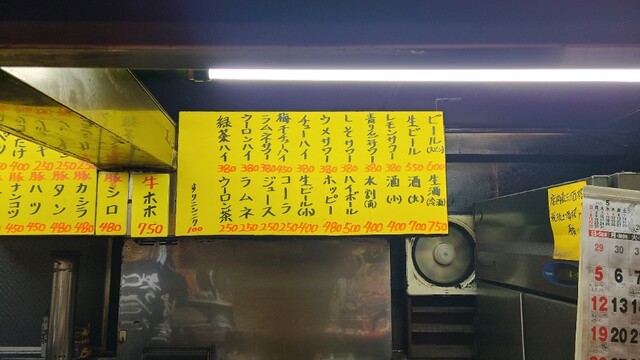 ビール
600
生ビール
550
レモンサワー
380
青リンゴサワー
380
しそサワー
380
ウメサワー
380
チューハイ
380
梅干チューハイ
450
ラムネサワー
380
ウーロンハイ
380
緑茶ハイ
380
生酒(冷酒)
750
酒(大)
700
酒(小)
400
水割(角)
400
ハイボール
500
ホッピー
480
生ビール(小)
400
コーラ
250
ジュース
250
ラムネ
250
ウーロン茶
250
100
牛ホホ
750
豚シロ
480
豚カシラ
480
豚タン
480
豚ハツ
450
豚ナンコツ
450
250
250
250
400
5
29 30
5 6
12 13
19 20